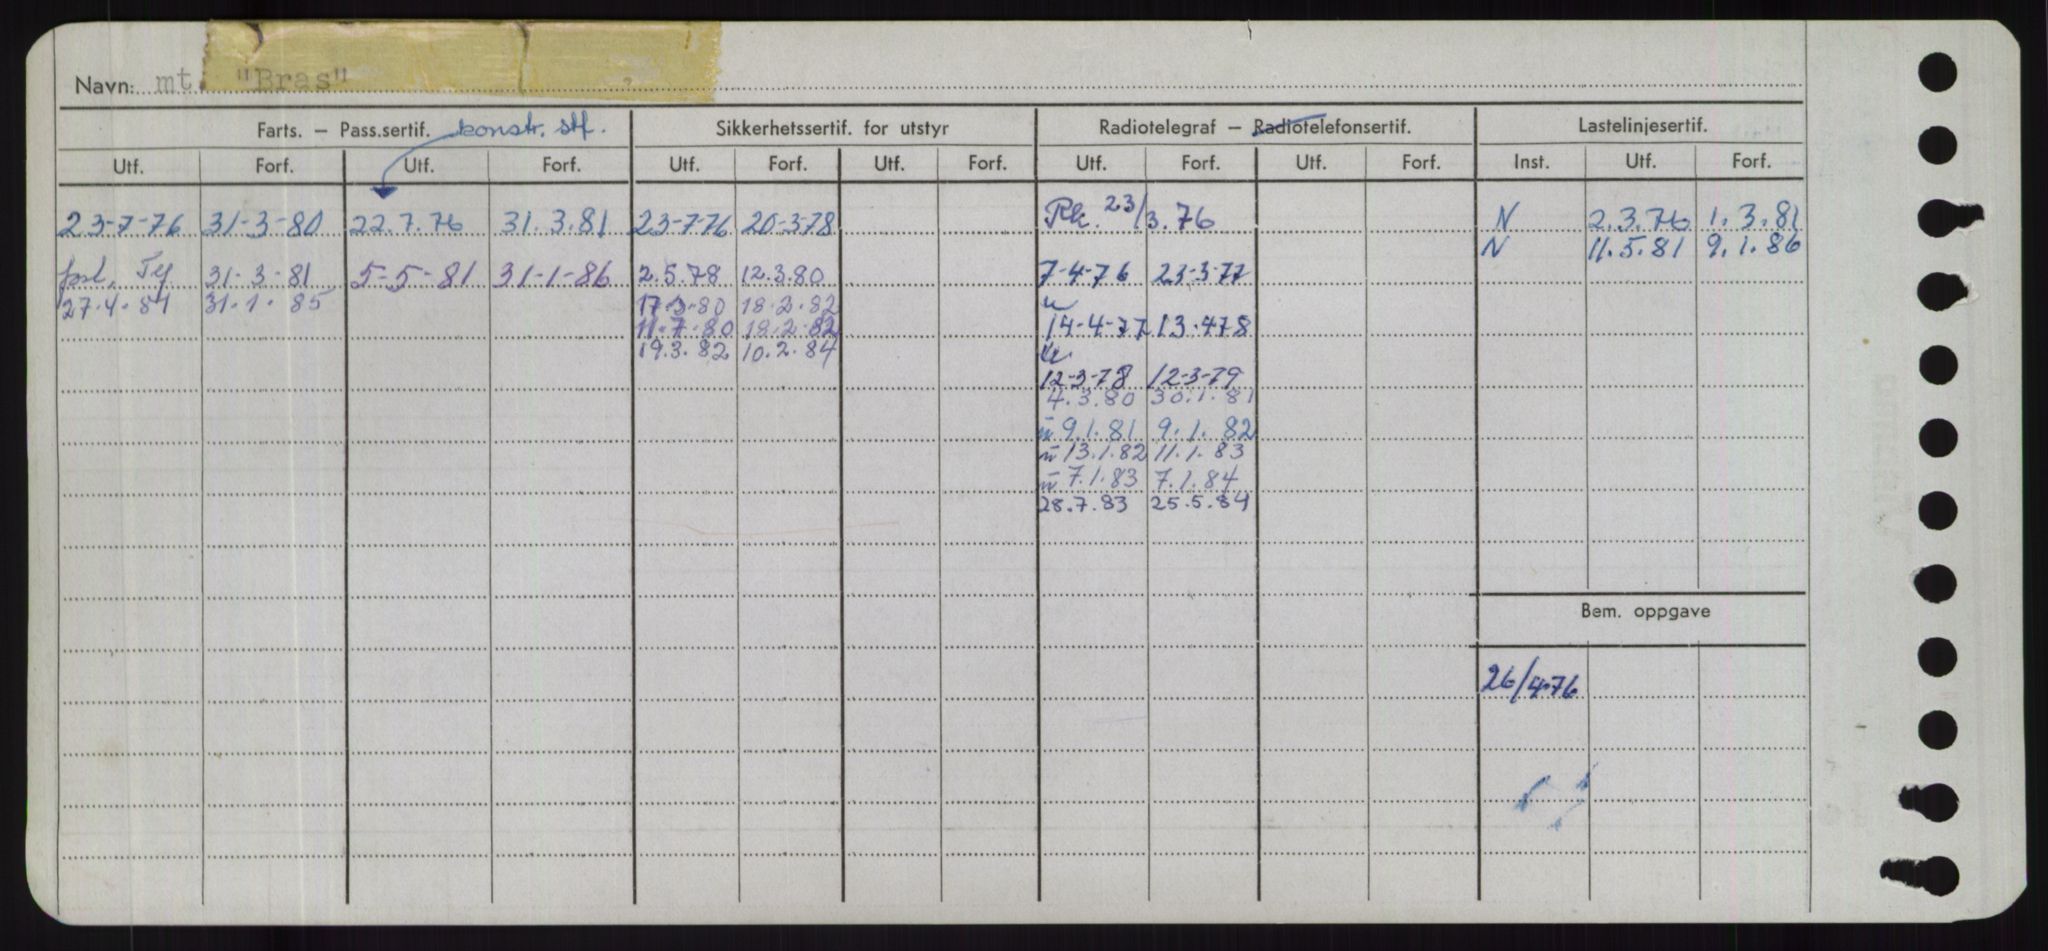 Navn: mt. "Bras"
Farts. – Pass.sertif. konstr. stf. Sikkerhetssertif. for utstyr Radiotelegraf – Radiotelefonsertif. Lastelinjesertif.
Utf. Forf. Utf. Forf. Utf. Forf. Utf. Forf. Utf. Forf. Utf. Forf. Inst. Utf. Forf.
23-7-76 31-3-80 22.7.76 31.3.81 23-7-76 20-3-78 Rk. 23/3.76 N 2.3.76 1.3.81
N 11.5.81 9.1.86
31-3-81 5-5-81 31-1-86 2.5.78 12.3.80 7-4-76 23-3-77
27.4.81 31.1.85 17.3.80 18.2.82
11.7.80 18.2.82 14-4-77 13.478
19.3.82 10.2.84
12-3-78 12-3-79
4.3.80 30.1.81
9.1.81 9.1.82
13.1.82 11.1.83
7.1.83 7.1.84
28.7.83 25.5.84
Bem. oppgave
26/4-76